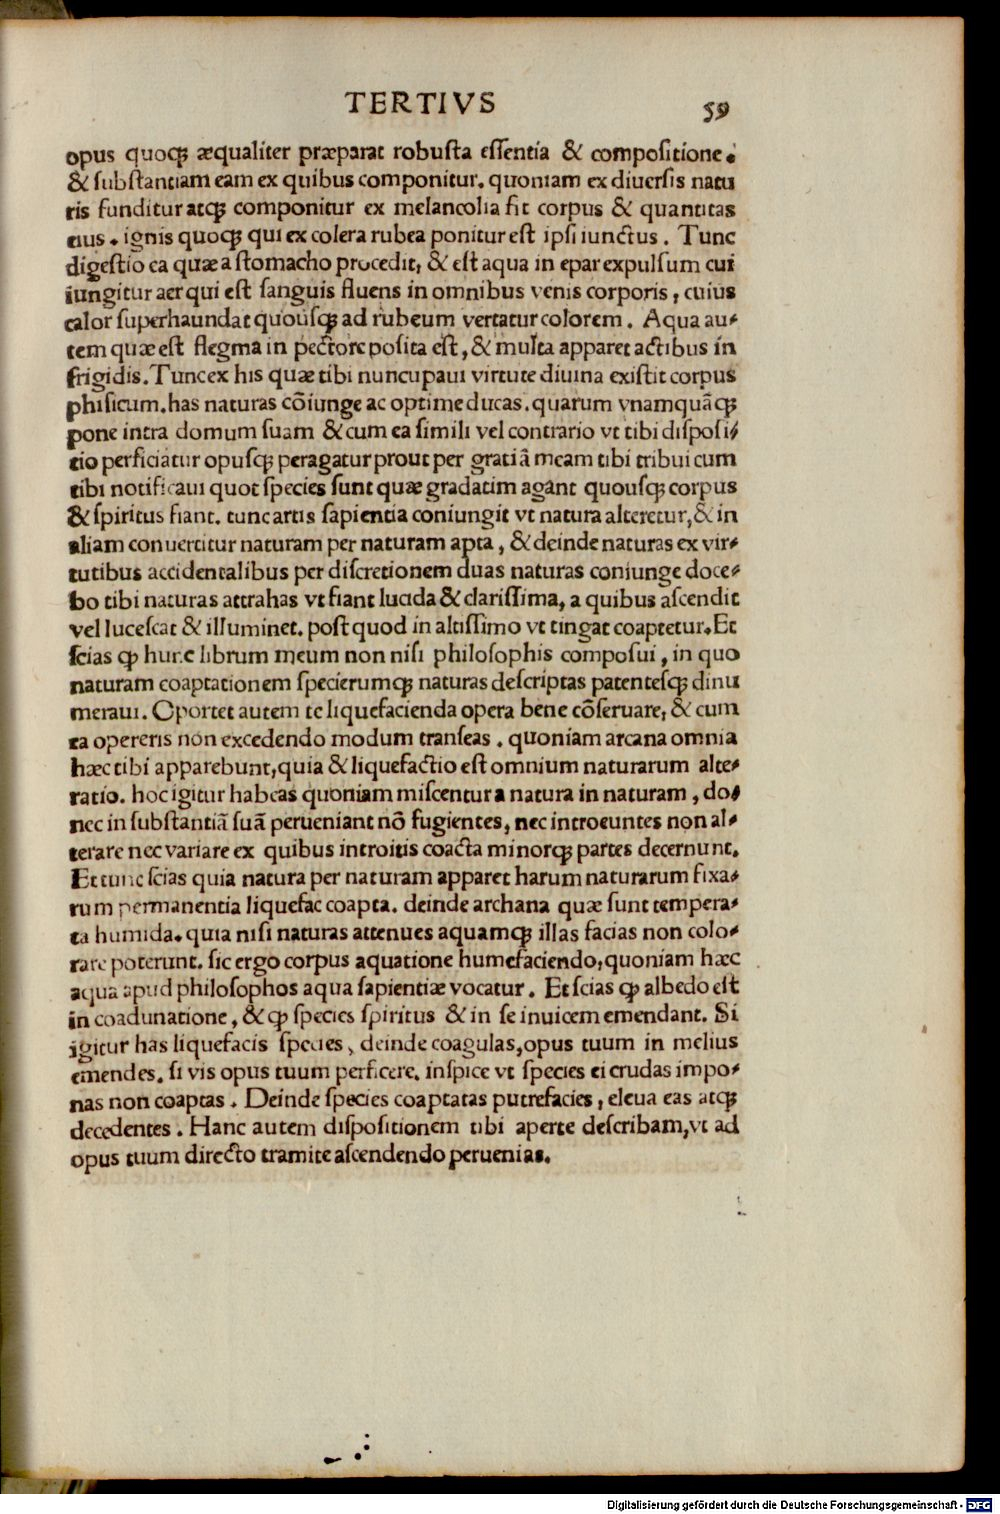 TERTIVS
59
opus quoqꝫ æqualiter præparat robusta essentia & compositione.
& substantiam eam ex quibus componitur. quoniam ex diuersis natu
ris funditur atqꝫ componitur ex melancolia fit corpus & quantitas
eius. ignis quoqꝫ qui ex colera rubea ponitur est ipsi iunctus. Tunc
digestio ea quæ a stomacho procedit, & est aqua in epar expulsum cui
iungitur aer qui est sanguis fluens in omnibus venis corporis, cuius
calor superhaundat quousqꝫ ad rubeum vertatur colorem. Aqua au-
tem quæ est flegma in pectore posita est, & multa apparet actibus in
frigidis. Tunc ex his quæ tibi nuncupaui virtute diuina existit corpus
phisicum. has naturas cõiunge ac optime ducas. quarum vnamquãqꝫ
pone intra domum suam & cum ea simili vel contrario vt tibi disposi-
tio perficiatur opusqꝫ peragatur prout per gratiã meam tibi tribui cum
tibi notificaui quot species sunt quæ gradatim agant quousqꝫ corpus
& spiritus fiant. tunc artis sapientia coniungit vt natura alteretur, & in
aliam conuertitur naturam per naturam apta, & deinde naturas ex vir-
tutibus accidentalibus per discretionem duas naturas coniunge doce-
bo tibi naturas attrahas vt fiant lucida & clarissima, a quibus ascendit
vel lucescat & illuminet. post quod in altissimo vt tingat coaptetur. Et
scias ꝙ hunc librum meum non nisi philosophis composui, in quo
naturam coaptationem specierumqꝫ naturas descriptas patentesqꝫ dinu
meraui. Oportet autem te liquefacienda opera bene cõseruare, & cum
ea opereris non excedendo modum transeas. quoniam arcana omnia
hæc tibi apparebunt, quia & liquefactio est omnium naturarum alte-
ratio. hoc igitur habeas quoniam miscentur a natura in naturam, do-
nec in substantiã suã perueniant nõ fugientes, nec introeuntes non al-
terare nec variare ex quibus introitis coacta minorqꝫ partes decernunt.
Et tunc scias quia natura per naturam apparet harum naturarum fixa-
rum permanentia liquefac coapta. deinde archana quæ sunt tempera-
ta humida. quia nisi naturas attenues aquamqꝫ illas facias non colo-
rare poterunt. sic ergo corpus aquatione humefaciendo, quoniam hæc
aqua apud philosophos aqua sapientiæ vocatur. Et scias ꝙ albedo est
in coadunatione, & ꝙ species spiritus & in se inuicem emendant. Si
igitur has liquefacis species, deinde coagulas, opus tuum in melius
emendes. si vis opus tuum perficere. inspice vt species ei crudas impo-
nas non coaptas. Deinde species coaptatas putrefacies, eleua eas atqꝫ
decedentes. Hanc autem dispositionem tibi aperte describam, vt ad
opus tuum directo tramite ascendendo peruenias.
Digitalisierung gefördert durch die Deutsche Forschungsgemeinschaft - DFG